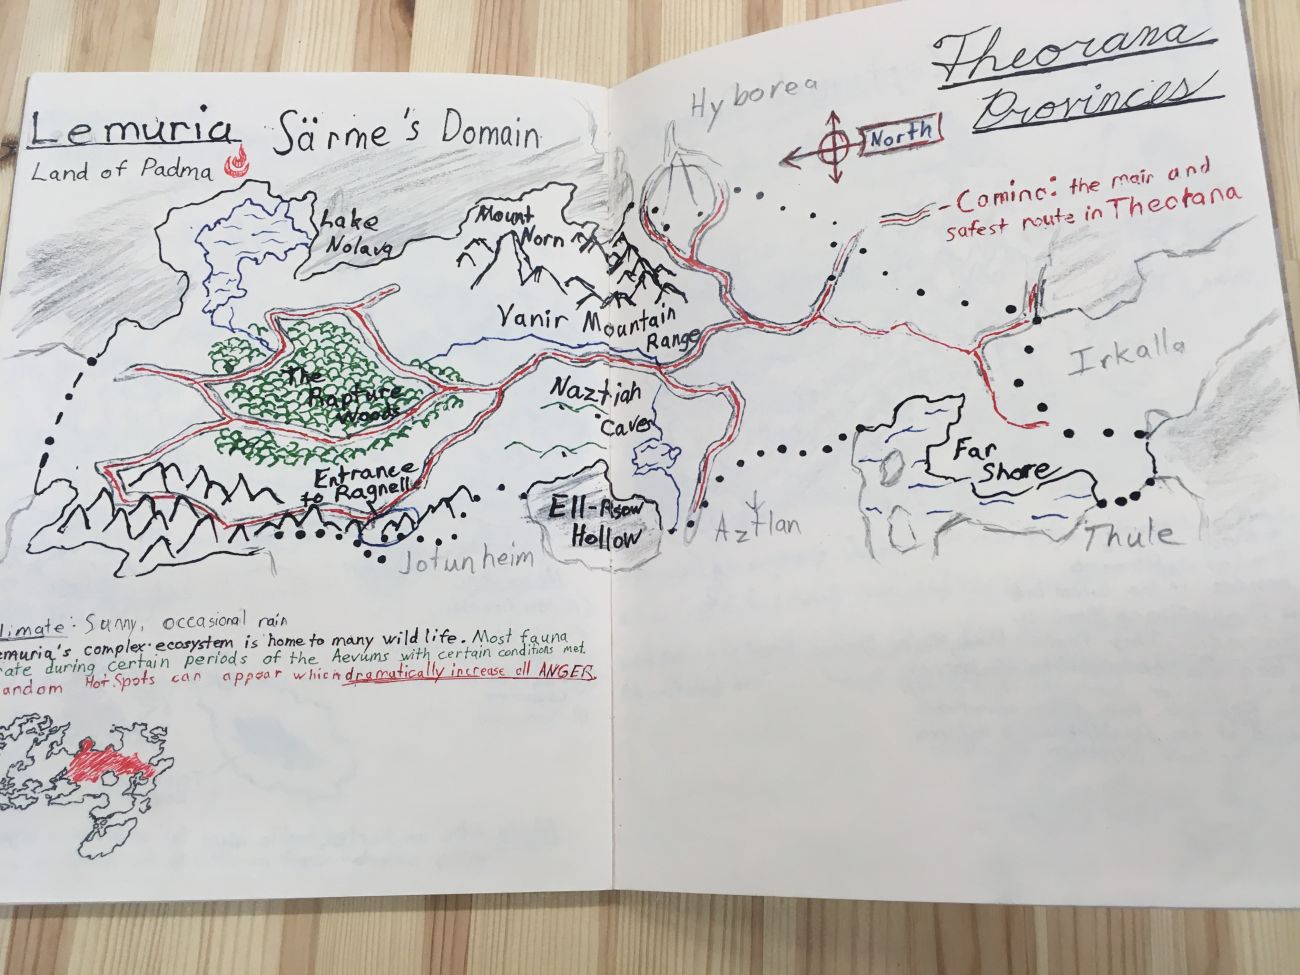 Theorana
Provinces
Lemuria Särme's Domain
Land of Padma
Hyborea
North
-Camino: the main and
safest route in Theorana
Lake
Nolava
Mount
Norn
Vanir Mountain
Range
Irkalla
The
Rapture
Woods
Naztjah
Caves
Far
Shore
Entrance
to Ragnelle
Ell-Asow
Hollow
Aztlan
Thule
Jotunheim
limate: Sunny, occasional rain
emuria's complex ecosystem is home to many wild life. Most fauna
ate during certain periods of the Aevums with certain conditions met.
andom Hot Spots can appear which dramatically increase all ANGER.